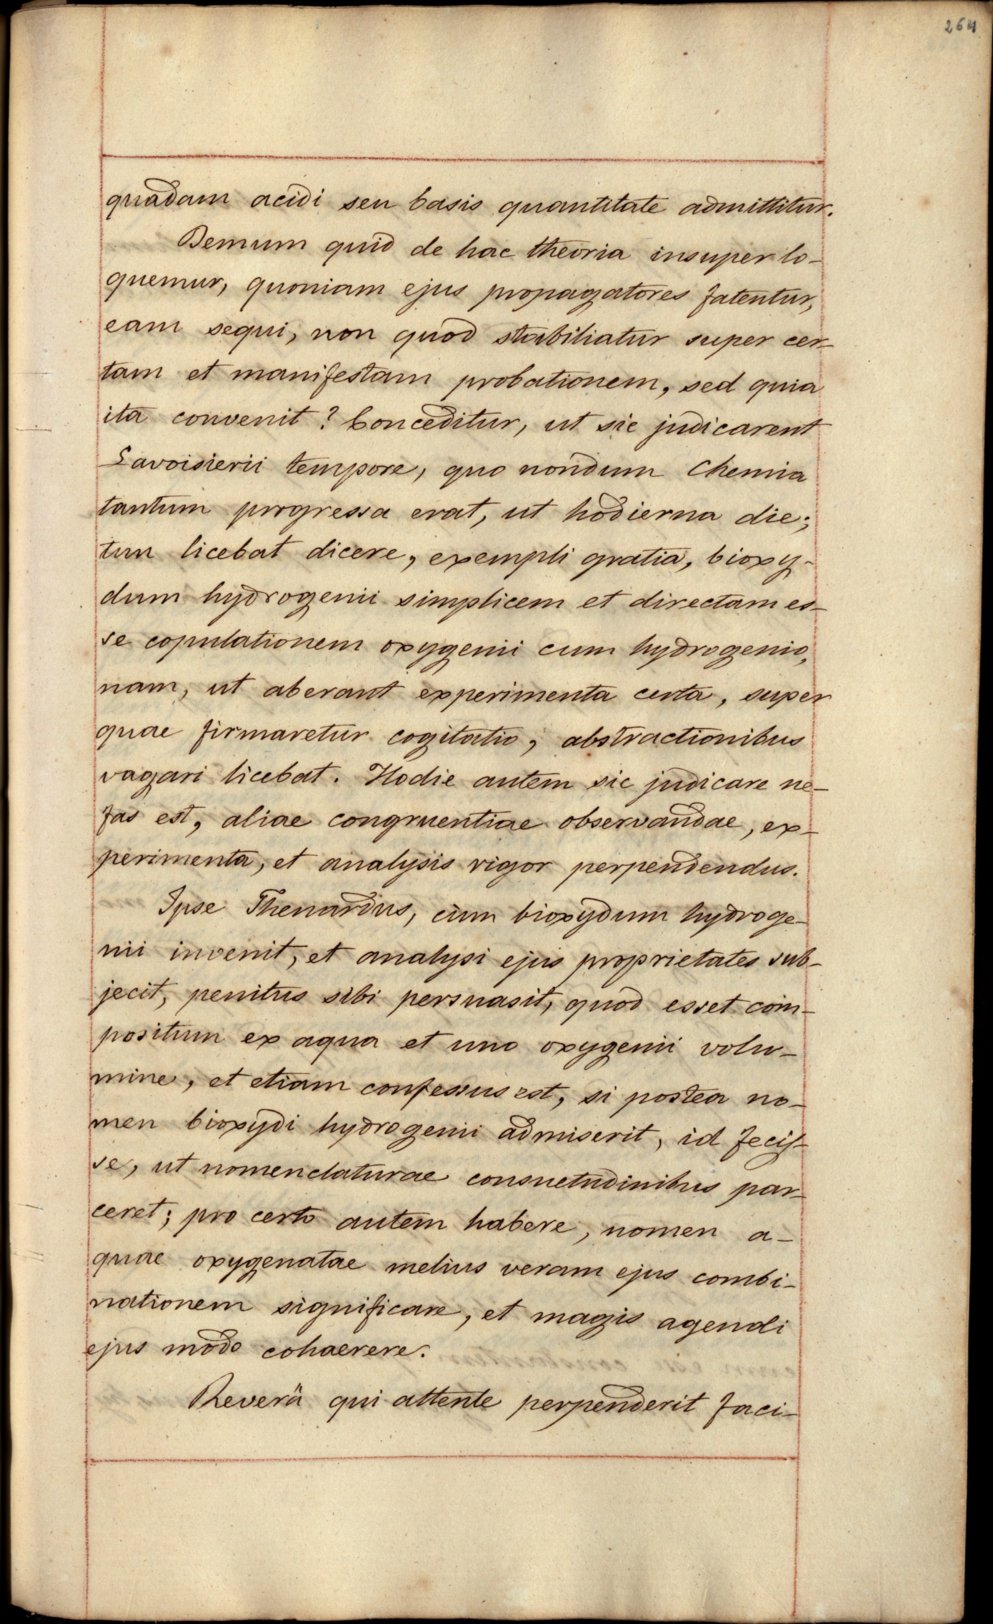 264
quadam acidi seu basis quantitate admittitur.
Demum quid de hac theoria insuper lo-
quemur, quoniam ejus propagatores fatentur,
eam sequi, non quod stabiliatur super cer-
tam et manifestam probationem, sed quia
ita convenit? Conceditur, ut sic judicarent
Lavoisierii tempore, quo nondum Chemia
tantum progressa erat, ut hodierna die;
tun licebat dicere, exempli gratia, bioxy-
dum hydrogenii simplicem et directam es-
se copulationem oxygenii cum hydrogenio,
nam, ut aberant experimenta certa, super
quae firmaretur cogitatio, abstractionibus
vagari licebat. Hodie autem sic judicare ne-
fas est, aliae congruentiae observandae, ex-
perimenta, et analysis rigor perpendendus.
Ipse Thenardus, cùm bioxydum hydroge-
nii invenit, et analysi ejus proprietates sub-
jecit, penitus sibi persuasit, quod esset com-
positum ex aqua et uno oxygenii volu-
mine, et etiam confessus est, si postea no-
men bioxydi hydrogenii admiserit, id fecis-
se, ut nomenclaturae consuetudinibus par-
ceret; pro certo autem habere, nomen a-
quae oxygenatae melius veram ejus combi-
nationem significare, et magis agendi
ejus modo cohaerere.
Reverâ qui attente perpenderit faci-